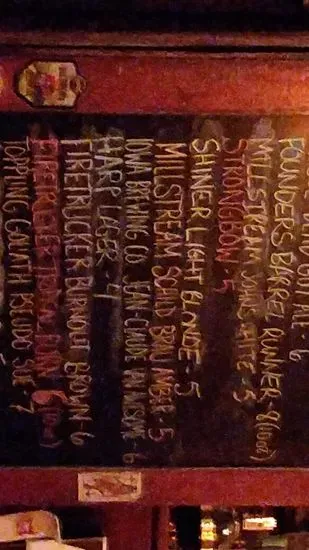 FOUNDERS BARREL RUNNER - 8 (10oz)
MILLSTREAM JOHN'S WHITE - 5
STRONGBOW - 5
SHINER LIGHT BLONDE - 5
MILLSTREAM SCHILD BRAU AMBER - 5
IOWA BREWING CO. JEAN-CLAUDE VAN - 6
HARP LAGER - 4
FIRETRUCKER BURNOUT BROWN - 6
FIRETRUCKER 6 (10oz)
TOPPLING GOLIATH PSEUDO SUE - 7